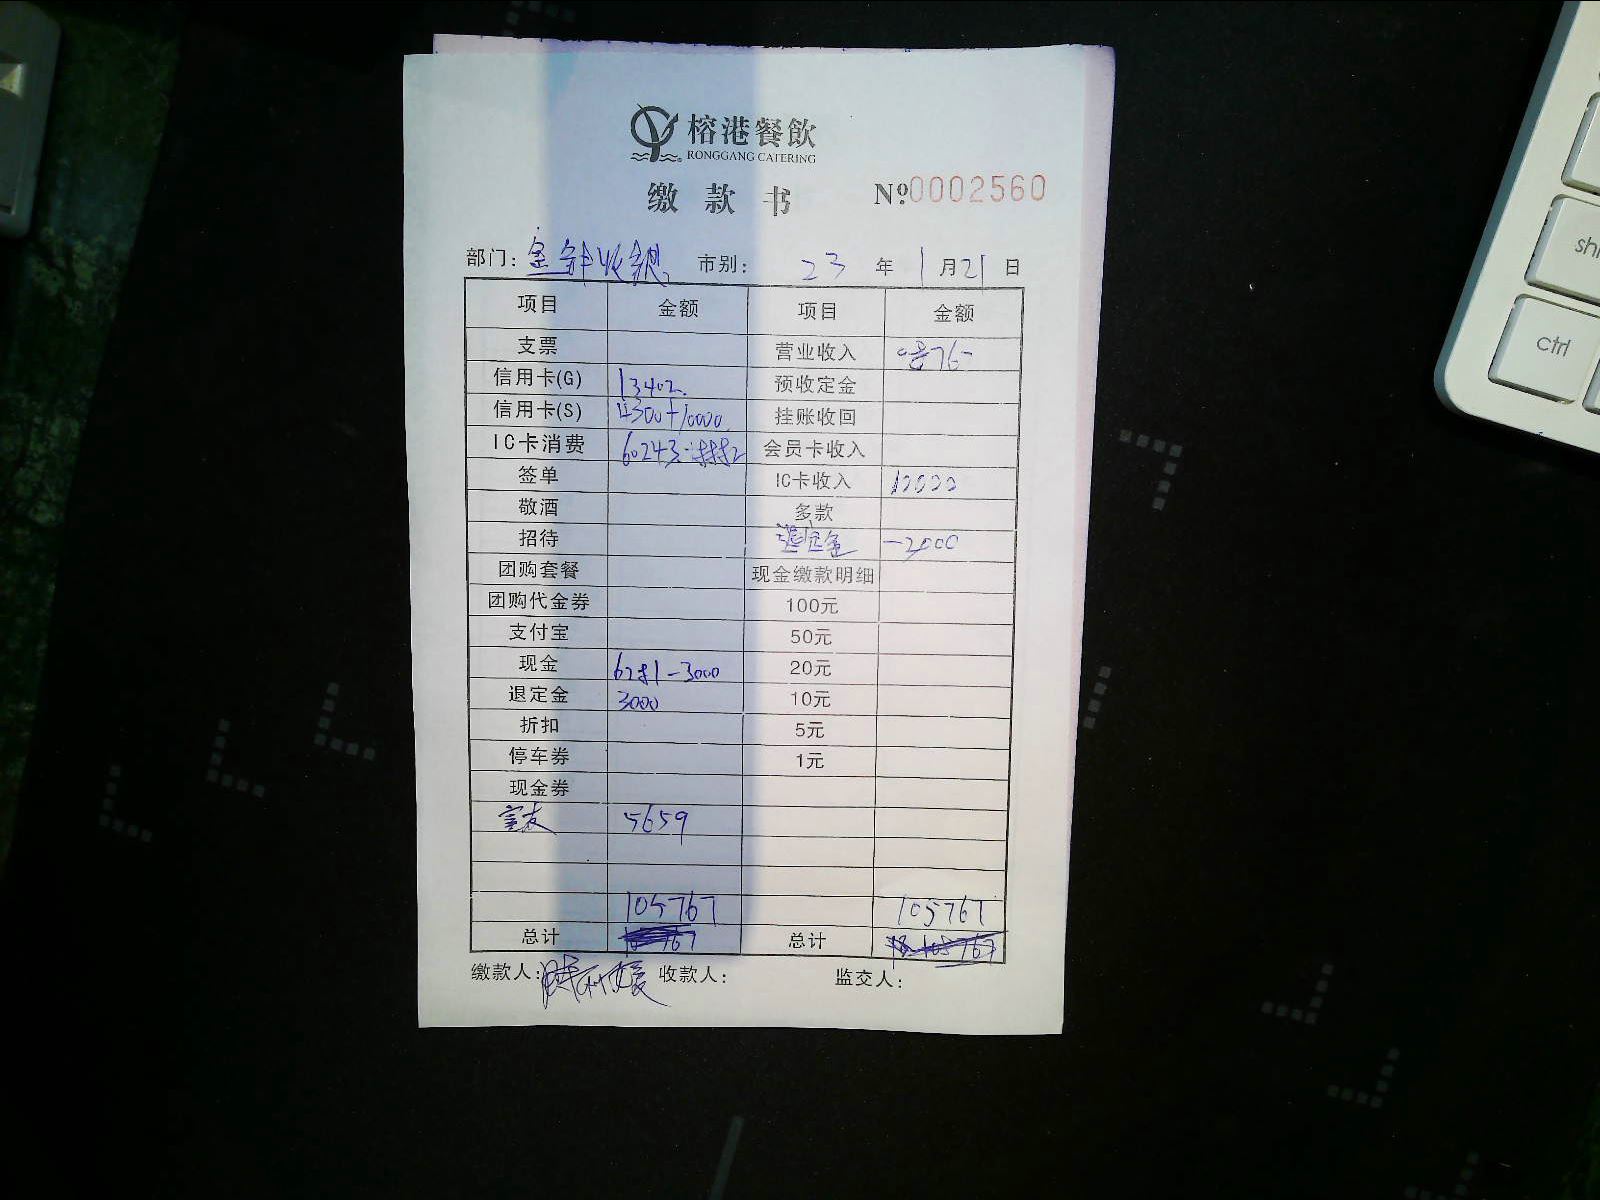 榕港餐飲
RONGGANG CATERING
缴款书 №0002560
部门: 市别: 23 年 1 月 21 日
项目 金额 项目 金额
支票 营业收入
信用卡(G) 13402 预收定金
信用卡(S) 4300+10000 挂账收回
IC卡消费 60243 会员卡收入
签单 IC卡收入 10000
敬酒 多款
招待 退定金 -3000
团购套餐 现金缴款明细
团购代金券 100元
支付宝 50元
现金 -3000 20元
退定金 3000 10元
折扣 5元
停车券 1元
现金券
5659
105767 105767
总计 总计
缴款人: 收款人: 监交人:
shi
ctrl